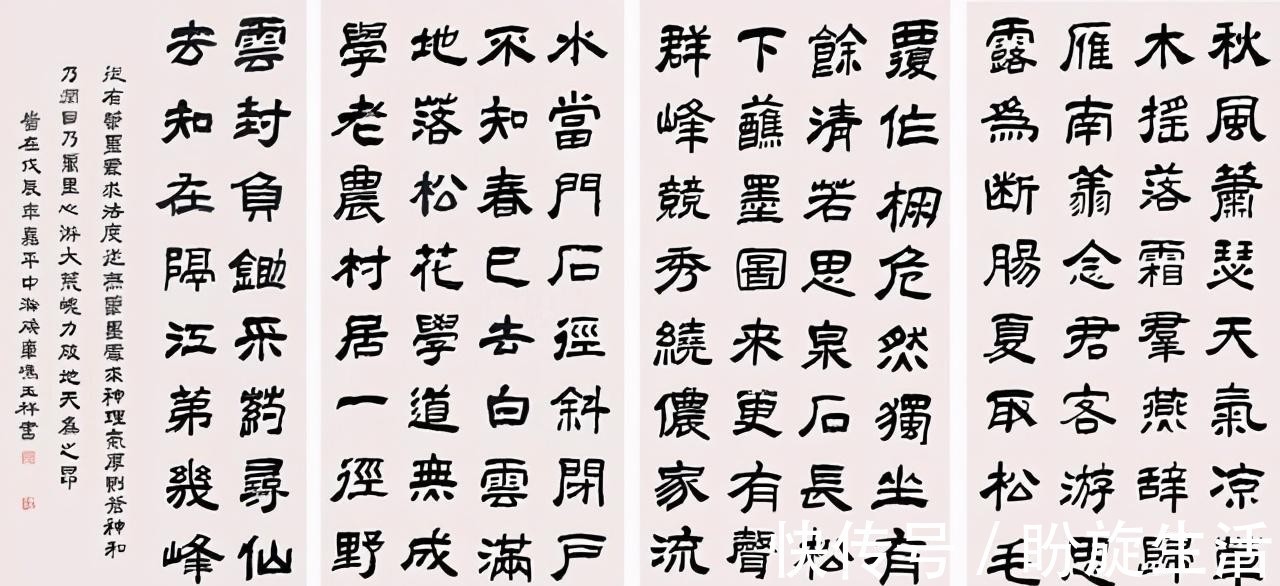 秋風蕭瑟天氣涼草
木摇落霜羣燕辞歸
雁南翁念君客游思
露為断腸夏取松毛
覆作棚危然獨坐有
餘清若思泉石長松
下蘸墨圖來更有聲
群峰競秀繞儂家流
水當門石徑斜閉戶
不知春已去白雲滿
地落松花學道無成
學老農村居一徑野
雲封負鋤采葯尋仙
去知在隔江第幾峰
從有筆墨處求法度從無筆墨處求神理氣厚則蒼神和
乃潤目乃無里心游大荒魄力破地天為之昂
皆在戊辰年嘉平中澣馮玉祥書
快传号 / 盼旋生活